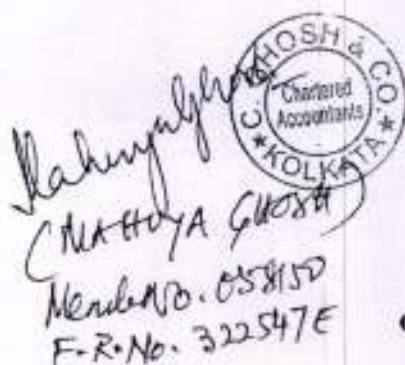 C. GHOSH & CO
Chartered
Accountants
★ KOLKATA ★
Mahuya Ghosh
(MAHUYA GHOSH)
Memb No. 058150
F.R.No. 322547E